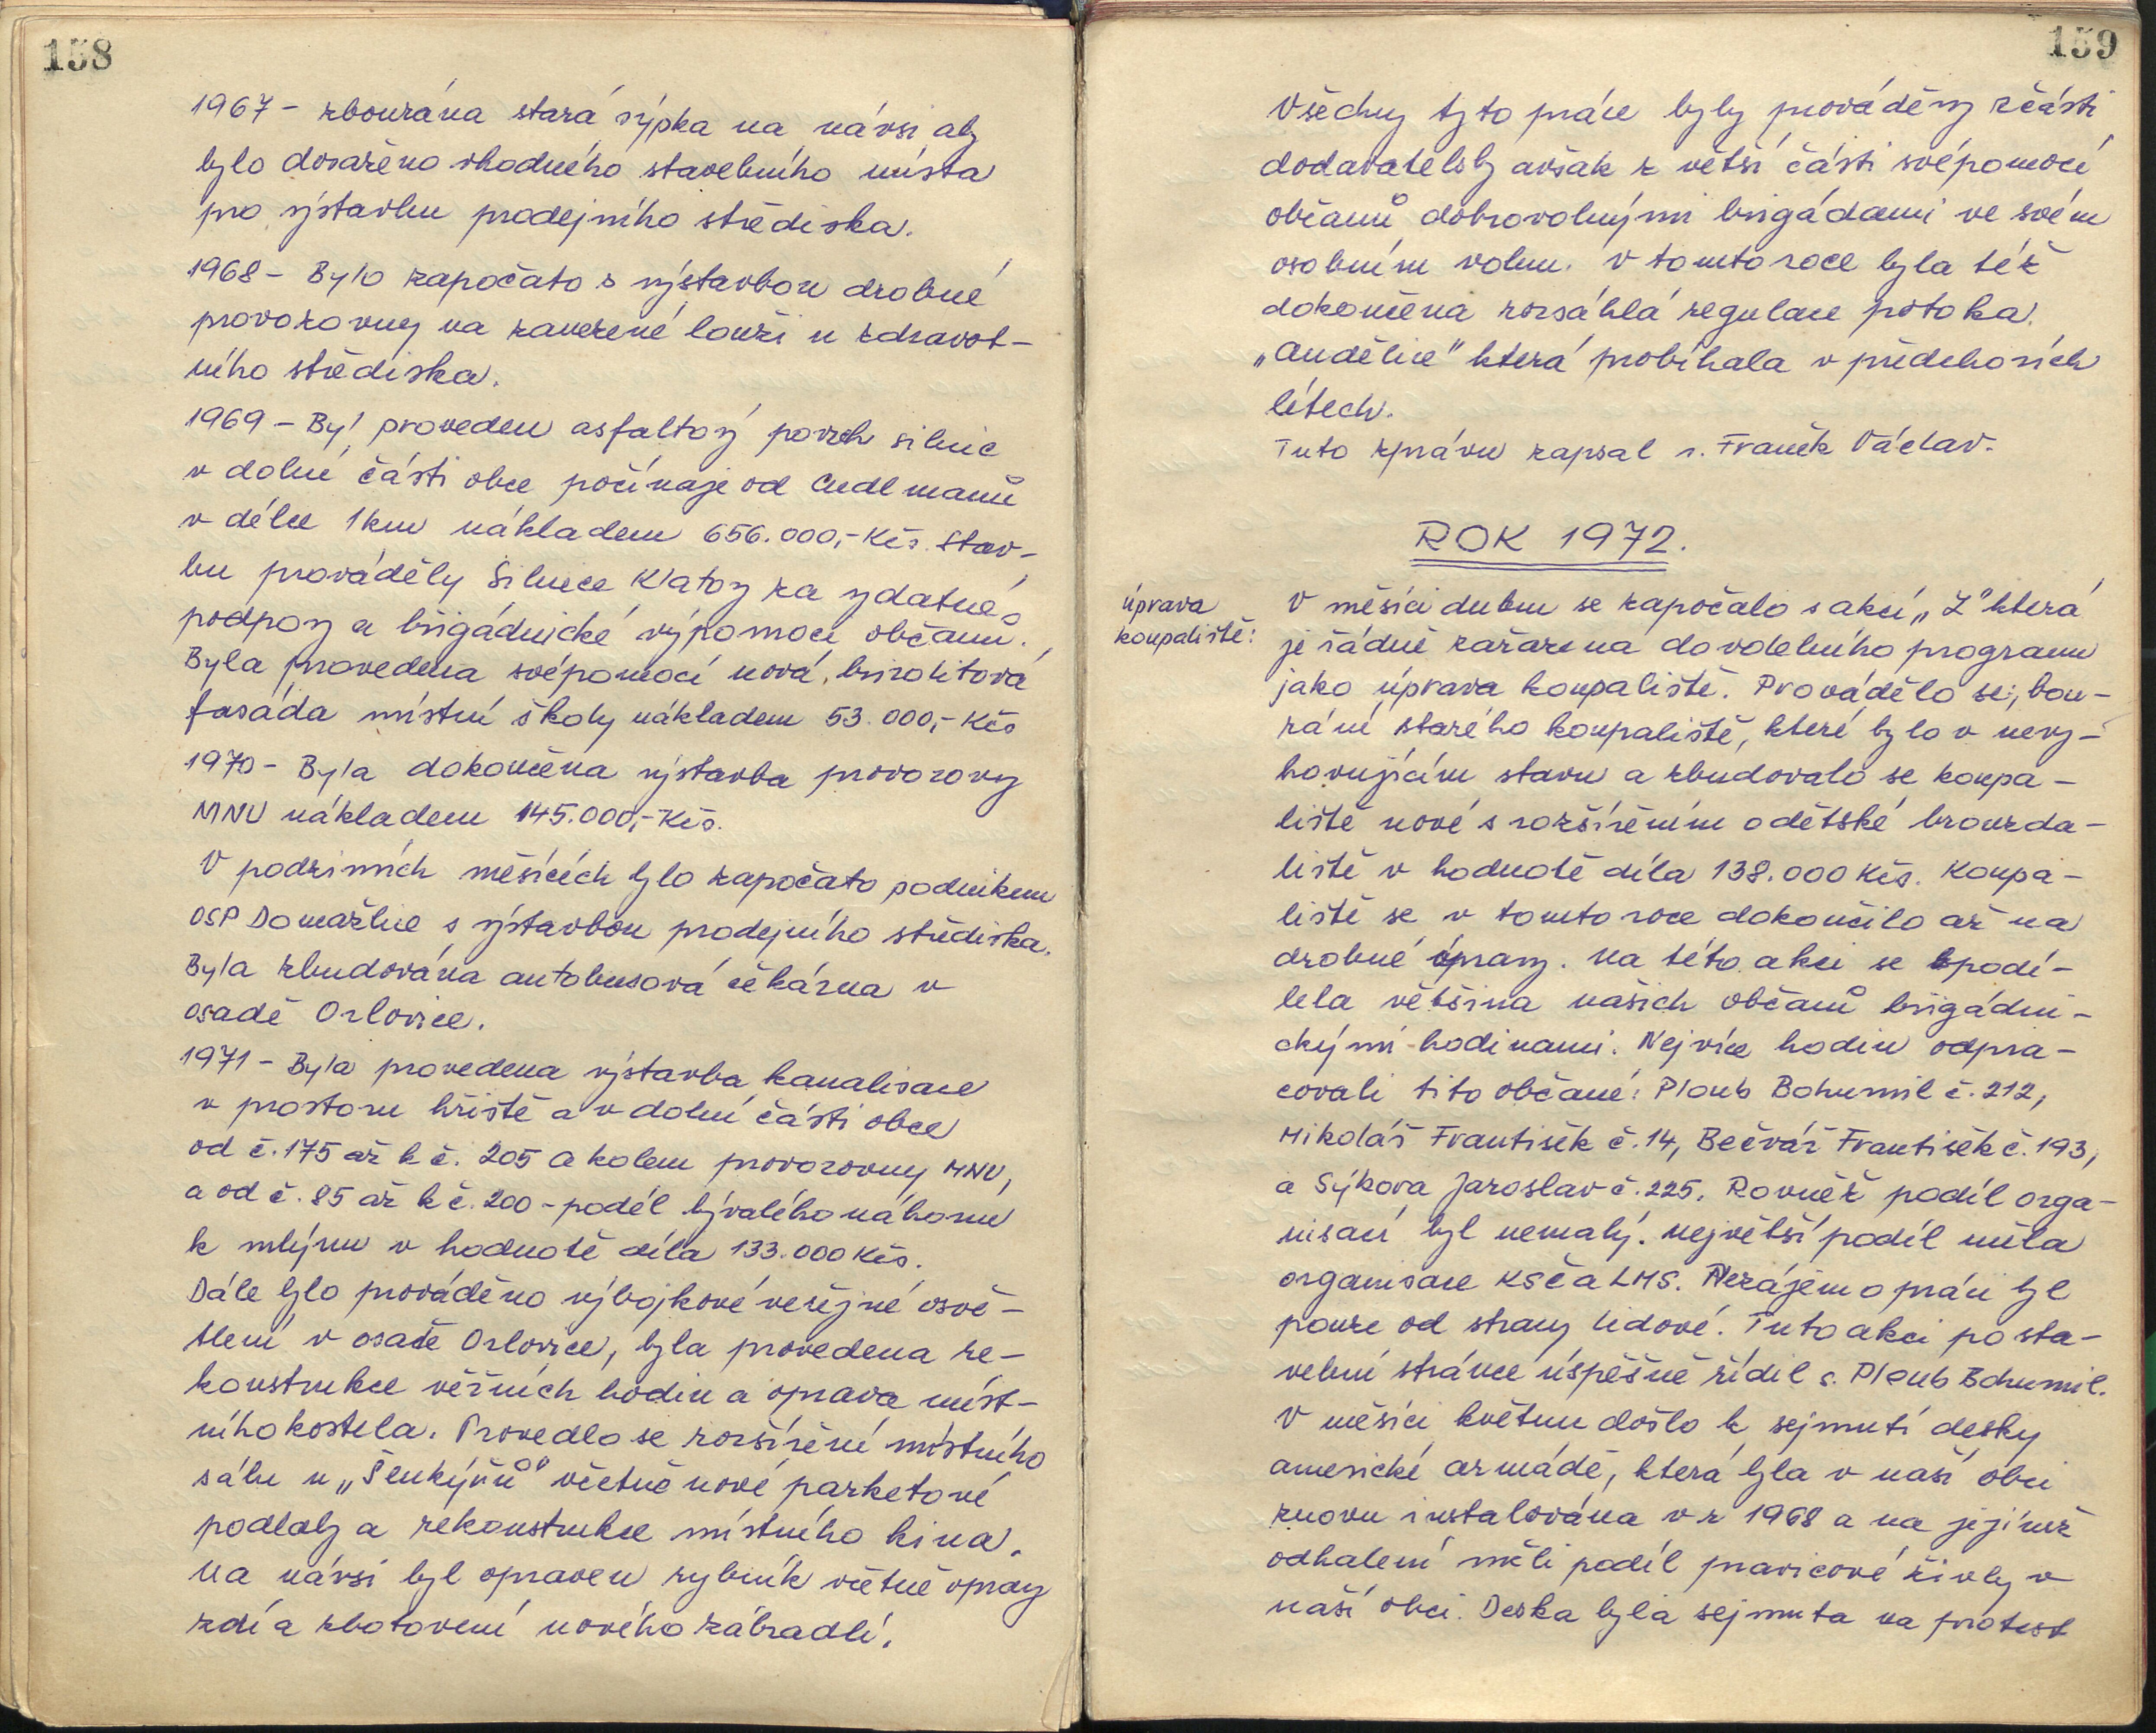 158
1967 - zbourána stará sýpka na návsi aby
bylo dosaženo vhodného stavebního místa
pro výstavbu prodejního střediska.
1968 - Bylo započato s výstavbou drobné
provozovny na zavezené louži u zdravot-
ního střediska.
1969 - Byl proveden asfaltový povrch silnic
v dolní části obce počínaje od Cudlmanů
v délce 1km nákladem 656.000,- Kčs. Stav-
bu prováděly Silnice Klatovy za vydatné
podpory a brigádnické výpomoci občanů.
Byla provedena svépomocí nová, brizolitová
fasáda místní školy nákladem 53.000,- Kčs
1970 - Byla dokončena výstavba provozovny
MNV nákladem 145.000,- Kčs.
V podzimních měsících bylo započato podnikem
OSP Domažlice s výstavbou prodejního střediska.
Byla zbudována autobusová čekárna v
osadě Orlovice.
1971 - Byla provedena výstavba kanalisace
v prostoru hřiště a v dolní části obce
od č. 175 až k č. 205 a kolem provozovny MNV,
a od č. 85 až k č. 200 - podél bývalého náhonu
k mlýnu v hodnotě díla 133.000 Kčs.
Dále bylo prováděno výbojkové veřejné osvě-
tlení v osadě Orlovice, byla provedena re-
konstrukce věžních hodin a oprava míst-
ního kostela. Provedlo se rozšíření místního
sálu u „Šenkýřů" včetně nové parketové
podlahy a rekonstrukce místního kina.
Na návsi byl opraven rybník včetně opravy
zdí a zhotovení nového zábradlí.
159
Všechny tyto práce byly prováděny zčásti
dodavatelsky avšak z větší části svépomocí
občanů dobrovolnými brigádami ve svém
osobním volnu. V tomto roce byla též
dokončena rozsáhlá regulace potoka
„Andělice" která probíhala v předchozích
létech.
Tuto zprávu zapsal s. Franěk Václav.
ROK 1972.
úprava
koupaliště:
V měsíci dubnu se započalo s akcí „Z" která
je řádně zařazena do volebního programu
jako úprava koupaliště. Provádělo se; bou-
rání starého koupaliště, které bylo v nevy-
hovujícím stavu a zbudovalo se koupa-
liště nové s rozšířením o dětské brouzda-
liště v hodnotě díla 138.000 Kčs. Koupa-
liště se v tomto roce dokončilo až na
drobné úpravy. Na této akci se podí-
lela většina našich občanů brigádni-
ckými hodinami. Nejvíce hodin odpra-
covali tito občané: Ploub Bohumil č. 212,
Mikoláš František č. 14, Bečvář František č. 193,
a Sýkora Jaroslav č. 225. Rovněž podíl orga-
nisací byl nemalý. největší podíl měla
organisace KSČ a LMS. Nezájem o práci byl
pouze od strany lidové. Tuto akci po sta-
vební stránce úspěšně řídil s. Ploub Bohumil.
V měsíci květnu došlo k sejmutí desky
americké armádě, která byla v naší obci
znovu instalována v r 1968 a na jejímž
odhalení měli podíl pravicové živly v
naší obci. Deska byla sejmuta na protest